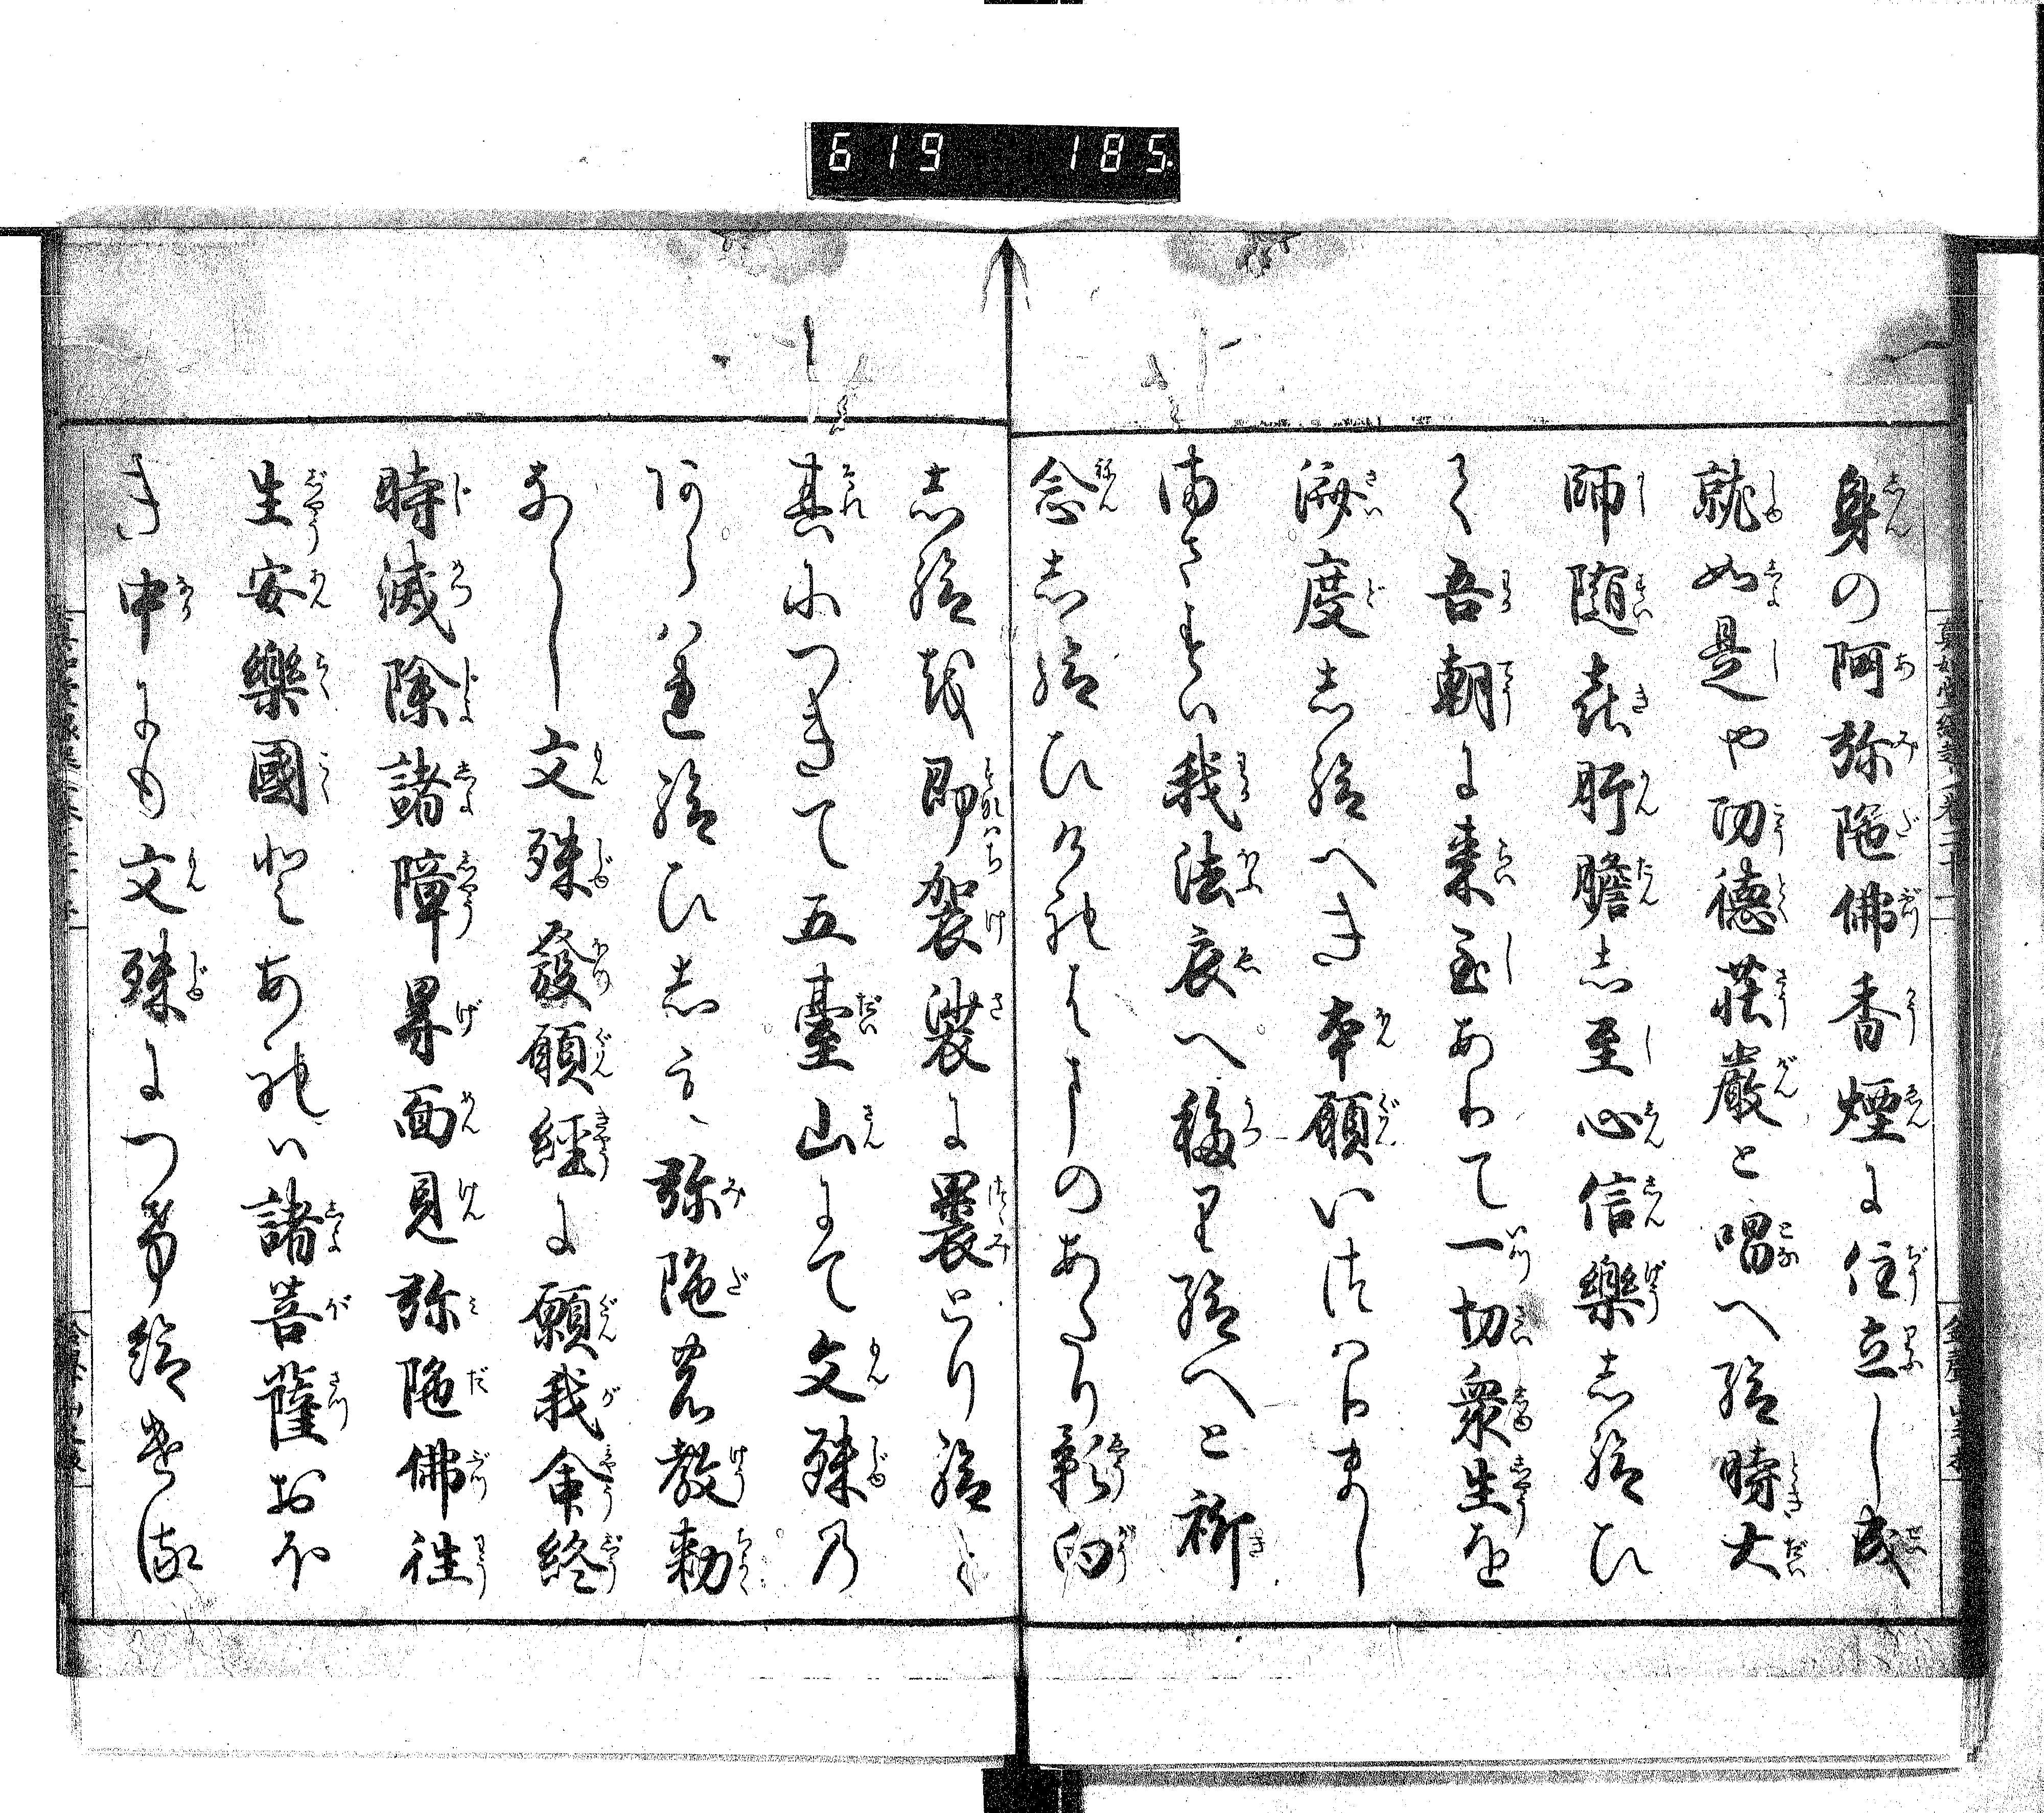 619 185
身の阿弥陀佛香煙に住立し成
就如是や功德莊嚴と唱へ給時大
師随㐂肝膽し至心信樂し給ひ
て吾朝に来至ありて一切衆生を
済度し給へき本願いつはりまし
まさすは我法衣へ移り給へと祈
念し給ひけれはまのあたり影向
し給を即袈裟に裹とり給と
其につきて五臺山にて文殊乃
あらはれ給ひしも弥陀の教勅
なりし文殊發願經に願我命終
時滅除諸障㝵面見弥陀佛往
生安樂國とあれは諸菩薩おほ
き中にも文殊に